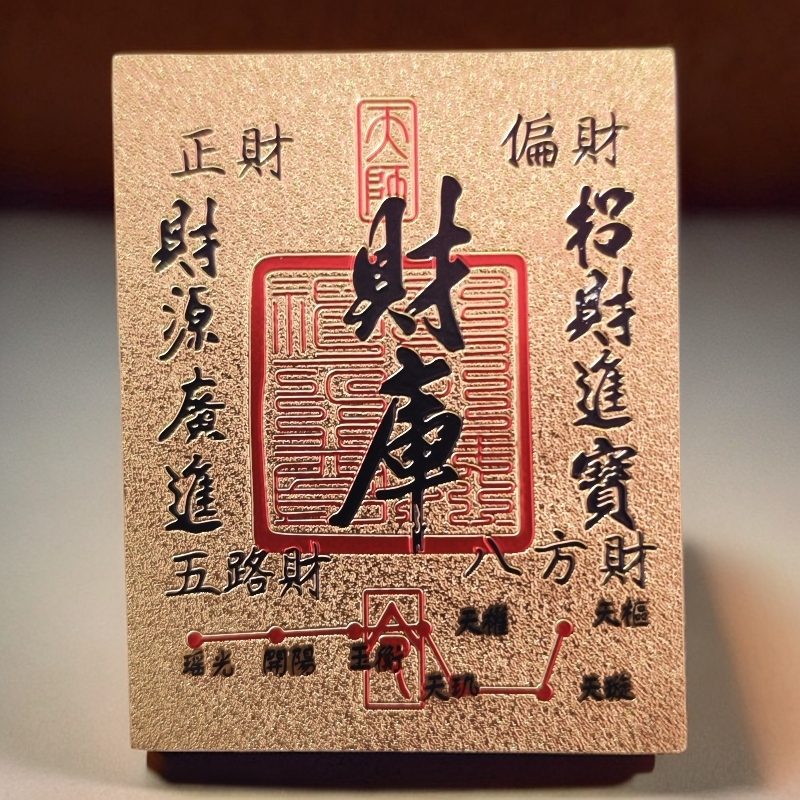 天師
正財
偏財
財庫
招財進寶
財源廣進
五路財
八方財
天權
天樞
瑤光
開陽
玉衡
天玑
天璇